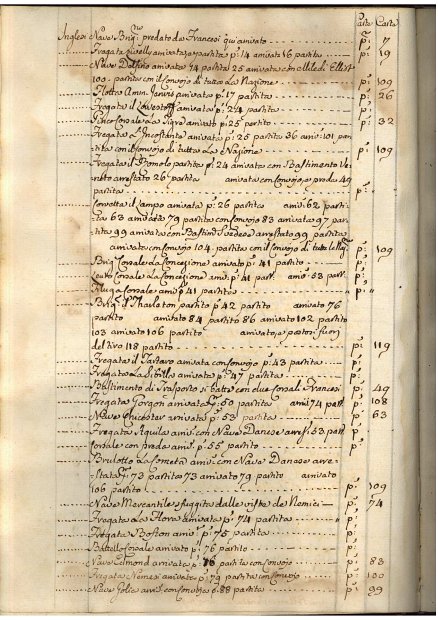 Parte Carta
Inglesi Nave Brig.o predato da Francesi qui arrivato p: 7
Fregata arrivata partita p: 14 arriv.a 16 partita p: 19
Nave Dolfino arrivata 14 partita 25 arrivata con
100. partita con il Convojo di tutte le Nazione p: 109
Flotta Amm. Jervis arrivata p: 17 partita p: 26
Fregata il Lowestoff arrivata p: 24 partita
Corsale la Tigre arrivata p: 25 partito p: 32
Fregata l'Incostante arrivata p: 25 partita 36 arriv: 101 par
tita con il Convojo di tutte le Nazione p: 109
Fregata il Romolo partita p: 24 arrivata con Bastimento Ve
neto arrestato 26 partita arrivata con Convojo, e preda 49
partita p:
Corvetta il Lampo arrivata p: 26 partita arriv: 62 parti
ta 63 arrivata 79 partita con Convojo 83 arrivata 97 par
tita 99 arrivata con Bastim.o Svedese arrestato 99 partita
arrivata con Convojo 104. partita con il Convojo di tutte le p: 109
Brig Corsale la Concezione arrivato p: 41 partito p:
Corsale la Concezione arriv. p: 41 part. arriv: 53 part. p:
Corsale arriv. p: 41 partito " "
Brig.o il Tharleton partito p: 42 partito arrivato 76
partito arrivato 84 partito 86 arrivato 102 partito
103 arrivato 106 partito arrivato, e postosi fuori
del tiro 118 partito p: 119
Fregata il Tartaro arrivata con Convojo p: 43 partita
Fregata la Sibilla arrivata p: 47 partita p:
Bastimento di Trasporto si batte con due Corsali Francesi p: 49
Fregata Gorgon arrivata p: 50 partita arriv. 74 part. p: 108
Nave Chichester arrivata p: 53 partita p: 63
Fregata Aquila arriv. con Nave Danese arres. 53 part.
Corsale con preda arriv. p: 55 partito
Brulotto la Cometa arriv. con Nave Danese arre-
stata p: 73 partito 73 arrivato 79 partito arrivato
106 partito p: 109
Nave Mercantile fuggita dalla vista de Nemici p: 74
Fregata la Flora arrivata p: 74 partita " p:
Fregata Boston arriv. p: 75 partita p:
Battello Corsale arrivato p: 76 partito p:
Nave Edmond arrivata p: 78 partita con Convojo p: 83
Fregata Nemesi arrivata p: 79 partita con Convojo p: 100
Nave Jolie arriv. con Convojo p: 88 partita p: 99